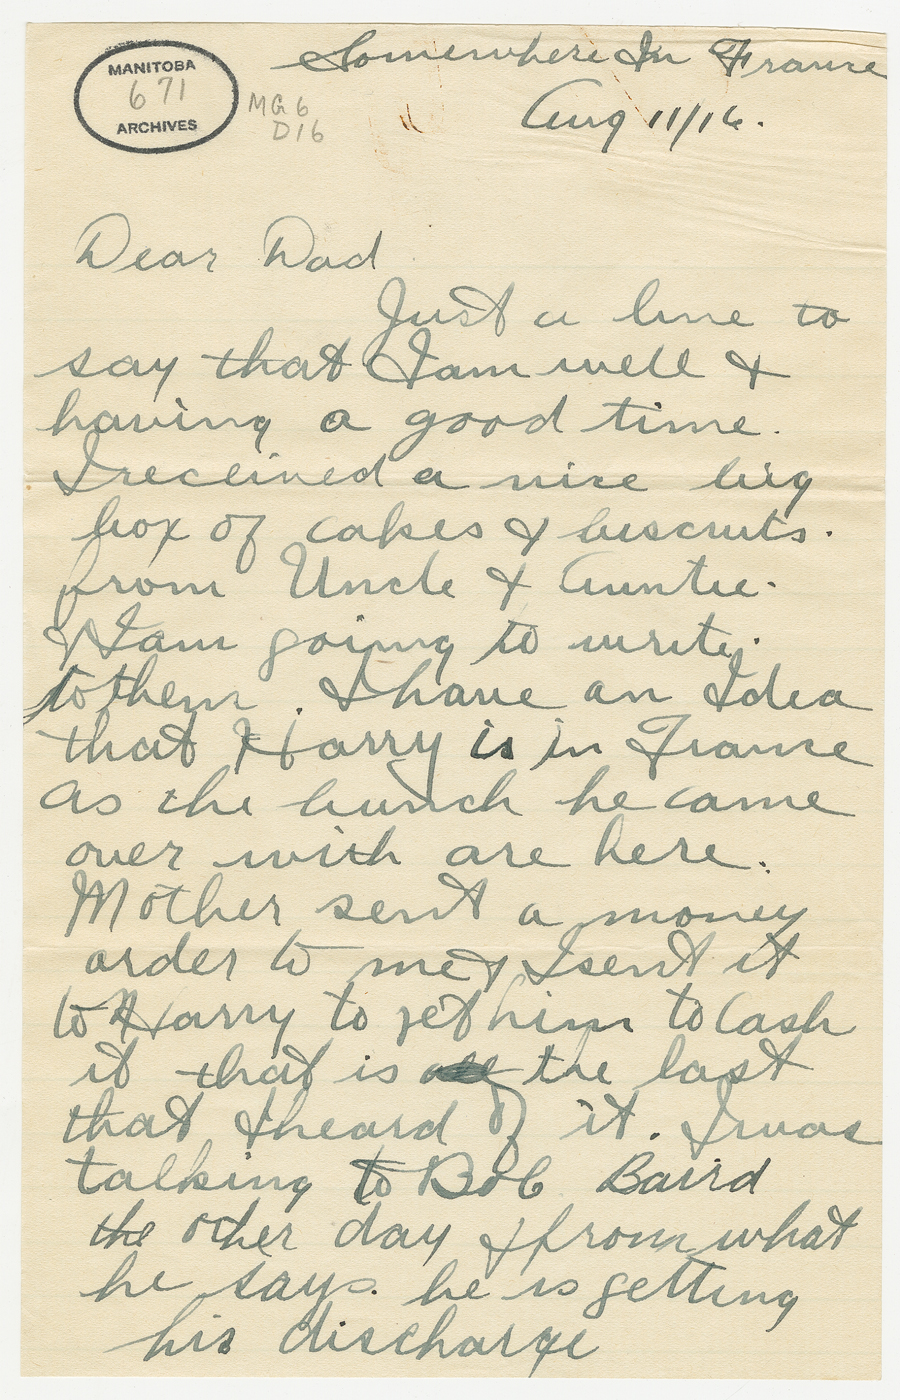 Somewhere In France
MANITOBA
671
ARCHIVES
MG6
D16
Aug 11/16.
Dear Dad
Just a line to
say that I am well &
having a good time.
I received a nice big
box of cakes & biscuits.
from Uncle & Auntie.
& I am going to write.
to them. I have an Idea
that Harry is in France
as the bunch he came
over with are here.
Mother sent a money
order to me & I sent it
to Harry to get him to Cash
it that is the last
that I heard of it. I was
talking to Bob Baird
the other day & from what
he says. he is getting
his discharge